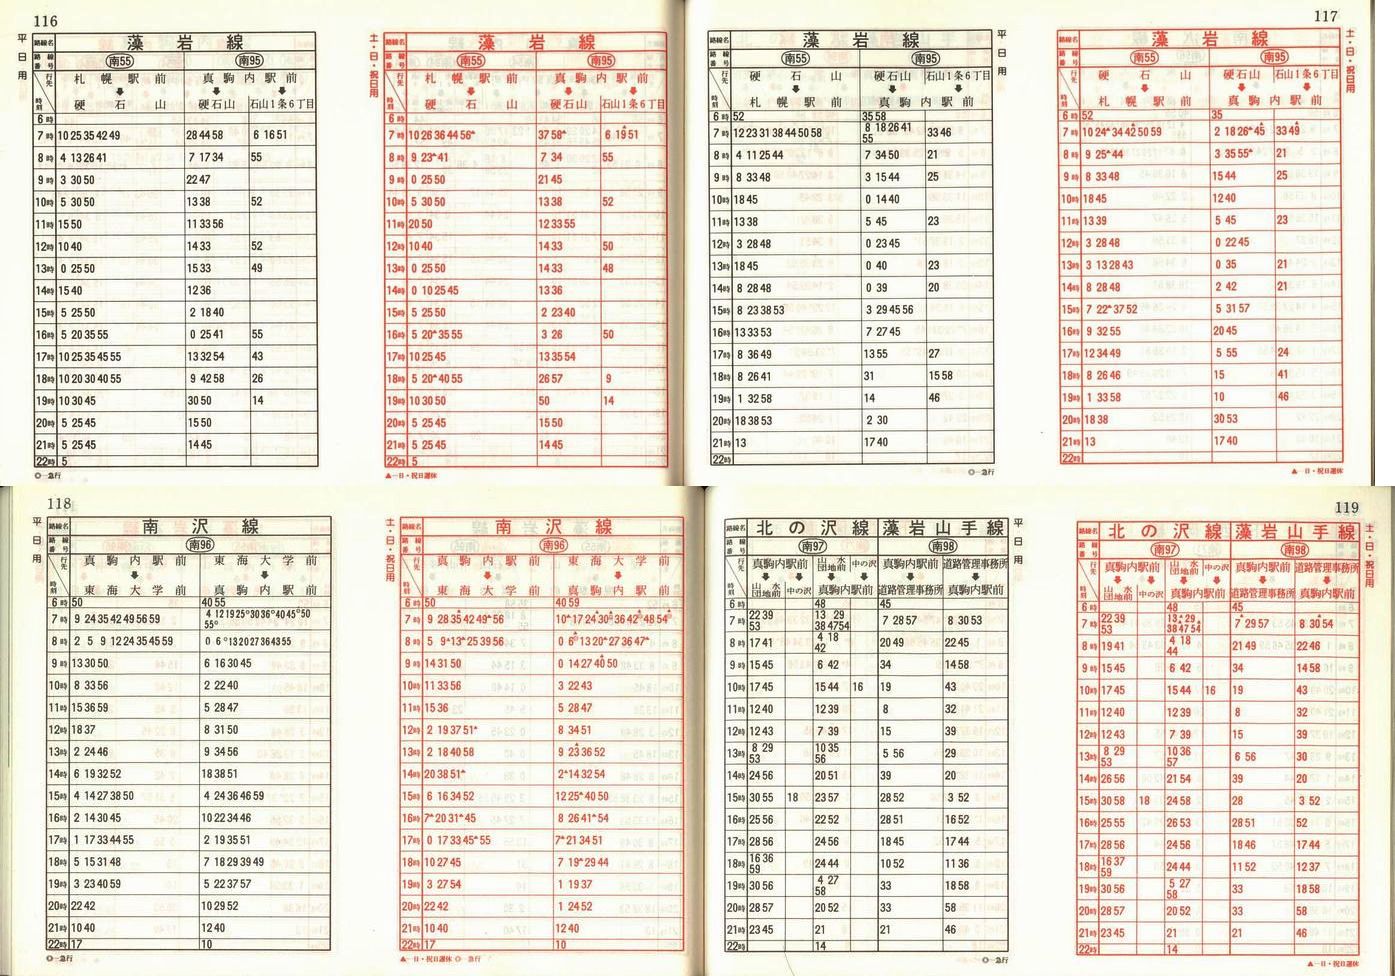 116
平日用
路線名 藻岩線
路線番号 南55 南95
行先 札幌駅前 真駒内駅前
時刻 硬石山 硬石山 石山1条6丁目
6時
7時 10 25 35 42 49 28 44 58 6 16 51
8時 4 13 26 41 7 17 34 55
9時 3 30 50 22 47
10時 5 30 50 13 38 52
11時 15 50 11 33 56
12時 10 40 14 33 52
13時 0 25 50 15 33 49
14時 15 40 12 36
15時 5 25 50 2 18 40
16時 5 20 35 55 0 25 41 55
17時 10 25 35 45 55 13 32 54 43
18時 10 20 30 40 55 9 42 58 26
19時 10 30 45 30 50 14
20時 5 25 45 15 50
21時 5 25 45 14 45
22時 5
◎—急行
土・日・祝日用
路線名 藻岩線
路線番号 南55 南95
行先 札幌駅前 真駒内駅前
時刻 硬石山 硬石山 石山1条6丁目
6時
7時 10 26 36 44 56▲ 37 58▲ 6 19▲ 51
8時 9 23▲ 41 7 34 55
9時 0 25 50 21 45
10時 5 30 50 13 38 52
11時 20 50 12 33 55
12時 10 40 14 33 50
13時 0 25 50 14 33 48
14時 0 10 25 45 13 36
15時 5 25 50 2 23 40
16時 5 20▲ 35 55 3 26 50
17時 10 25 45 13 35 54
18時 5 20▲ 40 55 26 57 9
19時 10 30 50 50 14
20時 5 25 45 15 50
21時 5 25 45 14 45
22時 5
▲—日・祝日運休
117
平日用
路線名 藻岩線
路線番号 南55 南95
行先 硬石山 硬石山 石山1条6丁目
時刻 札幌駅前 真駒内駅前
6時 52 35 58
7時 12 23 31 38 44 50 58 8 18 26 41 55 33 46
8時 4 11 25 44 7 34 50 21
9時 8 33 48 3 15 44 25
10時 18 45 0 14 40
11時 13 38 5 45 23
12時 3 28 48 0 23 45
13時 18 45 0 40 23
14時 8 28 48 0 39 20
15時 8 23 38 53 3 29 45 56
16時 13 33 53 7 27 45
17時 8 36 49 13 55 27
18時 8 26 41 31 15 58
19時 1 32 58 14 46
20時 18 38 53 2 30
21時 13 17 40
22時
◎—急行
土・日・祝日用
路線名 藻岩線
路線番号 南55 南95
行先 硬石山 硬石山 石山1条6丁目
時刻 札幌駅前 真駒内駅前
6時 52 35
7時 10 24▲ 34 42▲ 50 59 2 18 26▲ 45 33 49▲
8時 9 25▲ 44 3 35 55▲ 21
9時 8 33 48 15 44 25
10時 18 45 12 40
11時 13 39 5 45 23
12時 3 28 48 0 22 45
13時 3 13 28 43 0 35 21
14時 8 28 48 2 42 21
15時 7 22▲ 37 52 5 31 57
16時 9 32 55 20 45
17時 12 34 49 5 55 24
18時 8 26 46 15 41
19時 1 33 58 10 46
20時 18 38 30 53
21時 13 17 40
22時
▲—日・祝日運休
118
平日用
路線名 南沢線
路線番号 南96
行先 真駒内駅前 東海大学前
時刻 東海大学前 真駒内駅前
6時 50 40 55
7時 9 24 35 42 49 56 59 4 12 19 25◎ 30 36◎ 40 45◎ 50 55◎
8時 2 5 9 12 24 35 45 59 0 6◎ 13 20 27 36 43 55
9時 13 30 50 6 16 30 45
10時 8 33 56 2 22 40
11時 15 36 59 5 28 47
12時 18 37 8 31 50
13時 2 24 46 9 34 56
14時 6 19 32 52 18 38 51
15時 4 14 27 38 50 4 24 36 46 59
16時 2 14 30 45 10 22 34 46
17時 1 17 33 44 55 2 19 35 51
18時 5 15 31 48 7 18 29 39 49
19時 3 23 40 59 5 22 37 57
20時 22 42 10 29 52
21時 10 40 12 40
22時 17 10
◎—急行
土・日・祝日用
路線名 南沢線
路線番号 南96
行先 真駒内駅前 東海大学前
時刻 東海大学前 真駒内駅前
6時 50 40 59
7時 9 28 35 42▲ 49▲ 56 10▲ 17 24▲ 30◎ 36 42◎ 48 54◎
8時 5 9▲ 13▲ 25 39 56 0 6◎ 13 20▲ 27 36 47▲
9時 14 31 50 0 14 27 40▲ 50
10時 11 33 56 3 22 43
11時 15 36 5 28 47
12時 2 19 37 51▲ 8 34 51
13時 2 18 40 58 9 23▲ 36 52
14時 20 38 51▲ 2▲ 14 32 54
15時 6 16 34 52 12 25▲ 40 50
16時 7▲ 20 31▲ 45 8 26 41▲ 54
17時 0 17 33 45▲ 55 7▲ 21 34 51
18時 10 27 45 7 19▲ 29 44
19時 3 27 54 1 19 37
20時 22 42 1 24 52
21時 10 40 12 40
22時 17 10
▲—日・祝日運休 ◎—急行
119
平日用
路線名 北の沢線 藻岩山手線
路線番号 南97 南98
行先 真駒内駅前 山水団地前 中の沢 真駒内駅前 道路管理事務所
時刻 山水団地前 中の沢 真駒内駅前 道路管理事務所 真駒内駅前
6時 48 45
7時 22 39 53 13 29 38 47 54 7 28 57 8 30 53
8時 17 41 4 18 42 20 49 22 45
9時 15 45 6 42 34 14 58
10時 17 45 15 44 16 19 43
11時 12 40 12 39 8 32
12時 12 43 7 39 15 39
13時 8 29 53 10 35 56 5 56 29
14時 24 56 20 51 39 20
15時 30 55 18 23 57 28 52 3 52
16時 25 56 22 52 28 51 16 52
17時 28 56 24 56 18 45 17 44
18時 16 36 59 24 44 10 52 11 36
19時 30 56 4 27 58 33 18 58
20時 28 57 20 52 33 58
21時 23 45 21 21 46
22時 14
◎—急行
土・日・祝日用
路線名 北の沢線 藻岩山手線
路線番号 南97 南98
行先 真駒内駅前 山水団地前 中の沢 真駒内駅前 道路管理事務所
時刻 山水団地前 中の沢 真駒内駅前 道路管理事務所 真駒内駅前
6時 48 45
7時 22 39 53 13▲ 29▲ 38 47 54 7▲ 29 57 8 30▲ 54
8時 19 41 4 18 44 21 49 22 46
9時 15 45 6 42 34 14 58
10時 17 45 15 44 16 19 43
11時 12 40 12 39 8 32
12時 12 43 7 39 15 39
13時 8 29 53 10 36 57 6 56 30
14時 26 56 21 54 39 20
15時 30 58 18 24 58 28 3 52
16時 25 55 26 53 28 51 52
17時 28 56 24 56 18 46 17 44
18時 16 37 59 24 44 11 52 12 37
19時 30 56 5 27 58 33 18 58
20時 28 57 20 52 33 58
21時 23 45 21 21 46
22時 14
▲—日・祝日運休